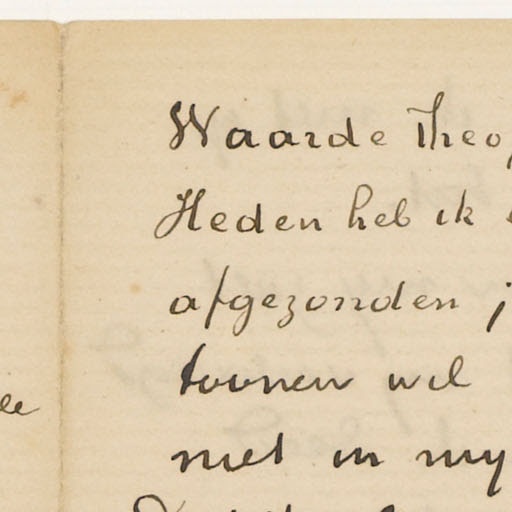 Waarde Theo,
Heden heb ik
afgezonden ;
toonen wil
met in my